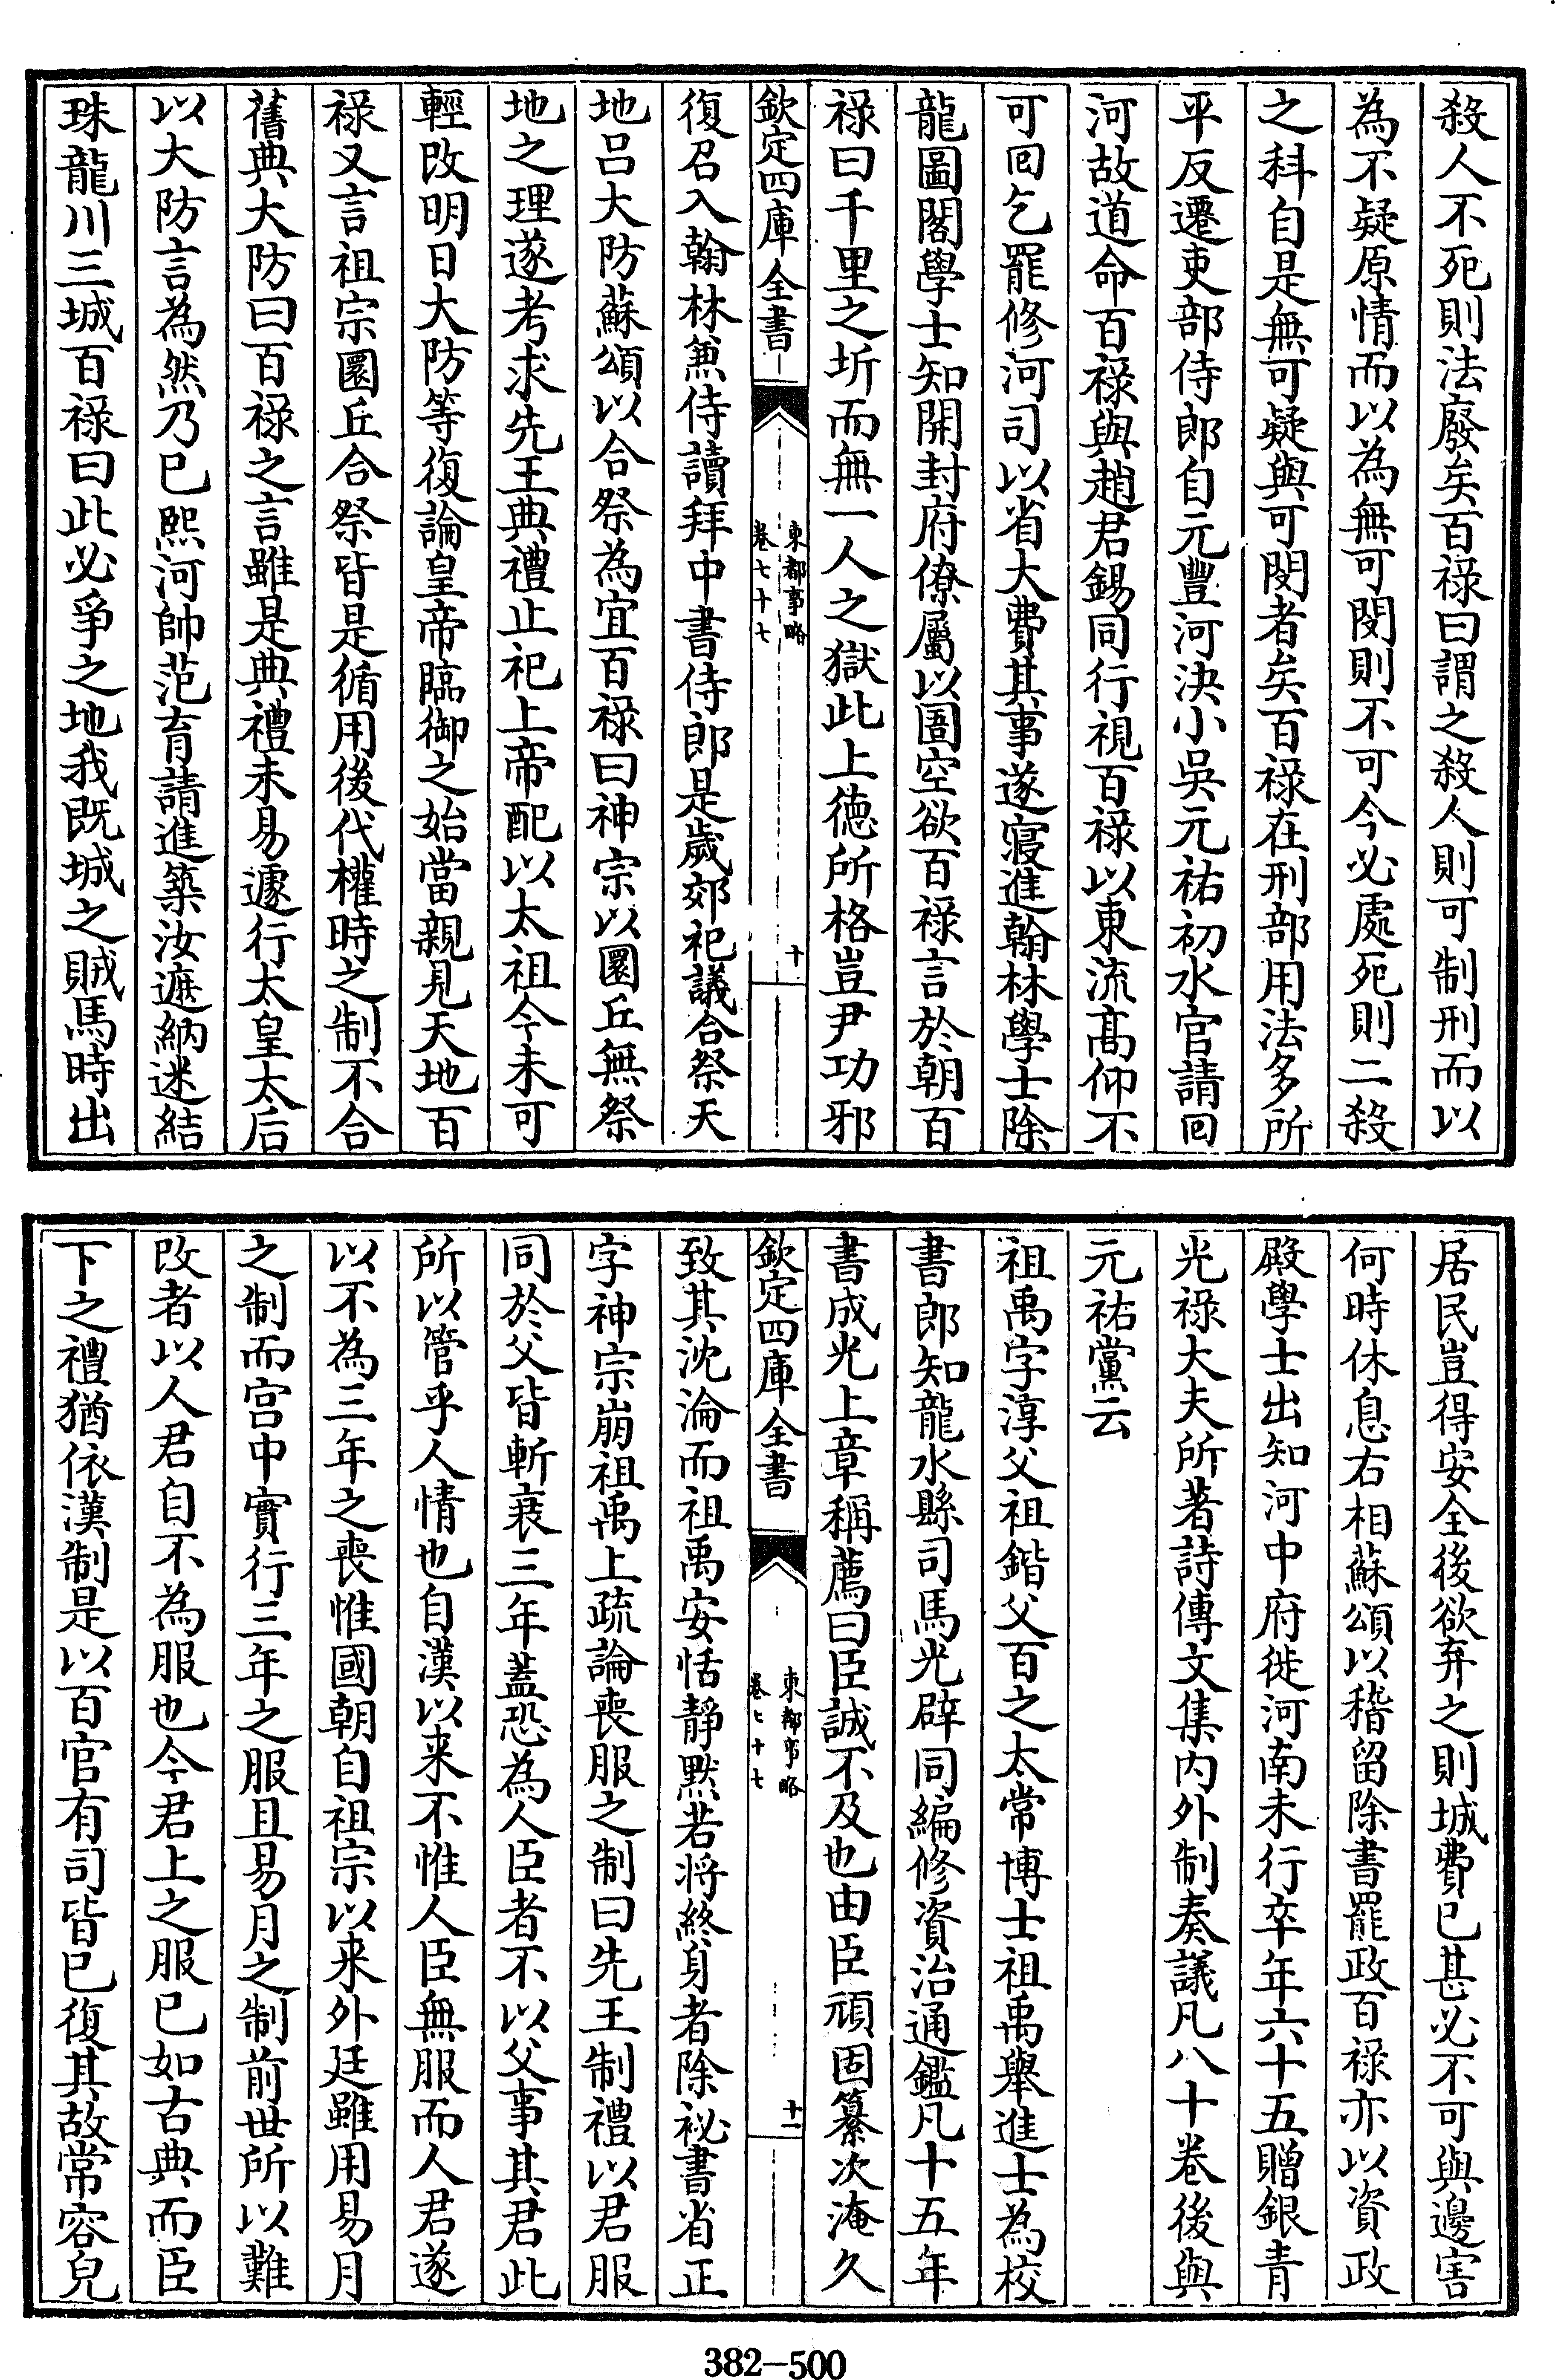 殺人不死則法廢矣百禄曰謂之殺人則可制刑而以
為不疑原情而以為無可閔則不可今必處死則二殺
之科自是無可疑與可閔者矣百禄在刑部用法多所
平反遷吏部侍郎自元豐河決小吳元祐初水官請回
河故道命百禄與趙君錫同行視百禄以東流髙仰不
可回乞罷修河司以省大費其事遂寢進翰林學士除
龍圖閣學士知開封府僚屬以圄空欲百禄言於朝百
禄曰千里之圻而無一人之獄此上徳所格豈尹功邪
欽定四庫全書
東都事略
卷七十七
十
復召入翰林兼侍讀拜中書侍郎是歲郊祀議合祭天
地呂大防蘇頌以合祭為宜百禄曰神宗以圜丘無祭
地之理遂考求先王典禮止祀上帝配以太祖今未可
輕改明日大防等復論皇帝臨御之始當親見天地百
禄又言祖宗圜丘合祭皆是循用後代權時之制不合
舊典大防曰百禄之言雖是典禮未易遽行太皇太后
以大防言為然乃已熙河帥范育請進築汝遮納迷結
珠龍川三城百禄曰此必爭之地我既城之賊馬時出
居民豈得安全後欲弃之則城費已甚必不可與邊害
何時休息右相蘇頌以稽留除書罷政百禄亦以資政
殿學士出知河中府徙河南未行卒年六十五贈銀青
光禄大夫所著詩傳文集内外制奏議凡八十卷後與
元祐黨云
祖禹字淳父祖鍇父百之太常博士祖禹舉進士為校
書郎知龍水縣司馬光辟同編修資治通鑑凡十五年
書成光上章稱薦曰臣誠不及也由臣頑固纂次淹久
欽定四庫全書
東都事略
卷七十七
十一
致其沈淪而祖禹安恬靜默若将終身者除祕書省正
字神宗崩祖禹上疏論喪服之制曰先王制禮以君服
同於父皆斬衰三年蓋恐為人臣者不以父事其君此
所以管乎人情也自漢以来不惟人臣無服而人君遂
以不為三年之喪惟國朝自祖宗以来外廷雖用易月
之制而宫中實行三年之服且易月之制前世所以難
改者以人君自不為服也今君上之服已如古典而臣
下之禮猶依漢制是以百官有司皆已復其故常容皃
382-500